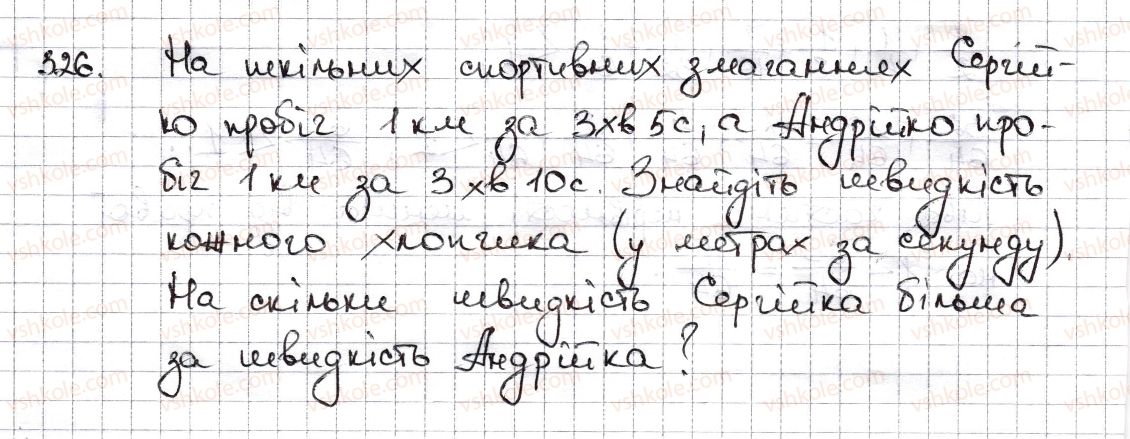 326. На шкільних спортивних змаганнях Сергій-
ко пробіг 1 км за 3 хв 5с, а Андрійко про-
біг 1 км за 3 хв 10с. Знайдіть швидкість
кожного хлопчика (у метрах за секунду).
На скільки швидкість Сергійка більша
за швидкість Андрійка?